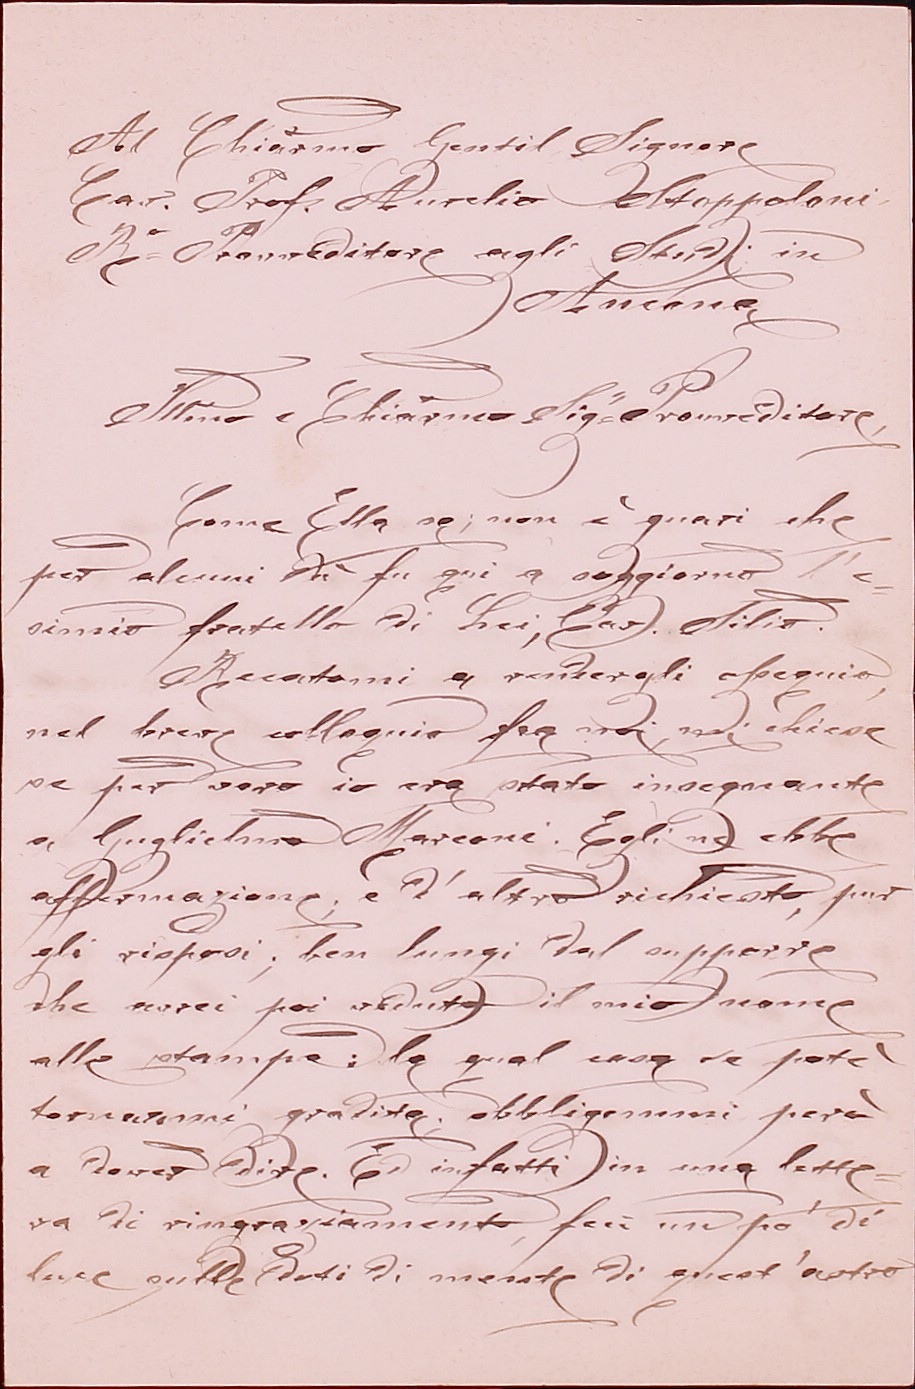 Al Chiarmo Gentil Signore
Cav. Prof. Aurelio Stoppoloni
Ro= Provveditore agli Studi in
Ancona
Illmo e Chiarmo Sigr Provveditore,
Come Ella sa; non è guari che
per alcuni dì fu qui a soggiorno l'e=
simio fratello di Lei, Cav. Silio.
Recatomi a rendergli ossequio,
nel breve colloquio fra noi, mi chiese
se per vero io era stato insegnante
a Guglielmo Marconi. Egli ne ebbe
affermazione; e d'altro richiesto, pur
gli risposi; ben lungi dal supporre
che avrei poi veduto il mio nome
alle stampe: la qual cosa se potè
tornarmi gradita, obbligommi però
a dover dire. Ed infatti in una lette=
ra di ringraziamento, feci un po' di
luce sulle doti di mente di quest'astro